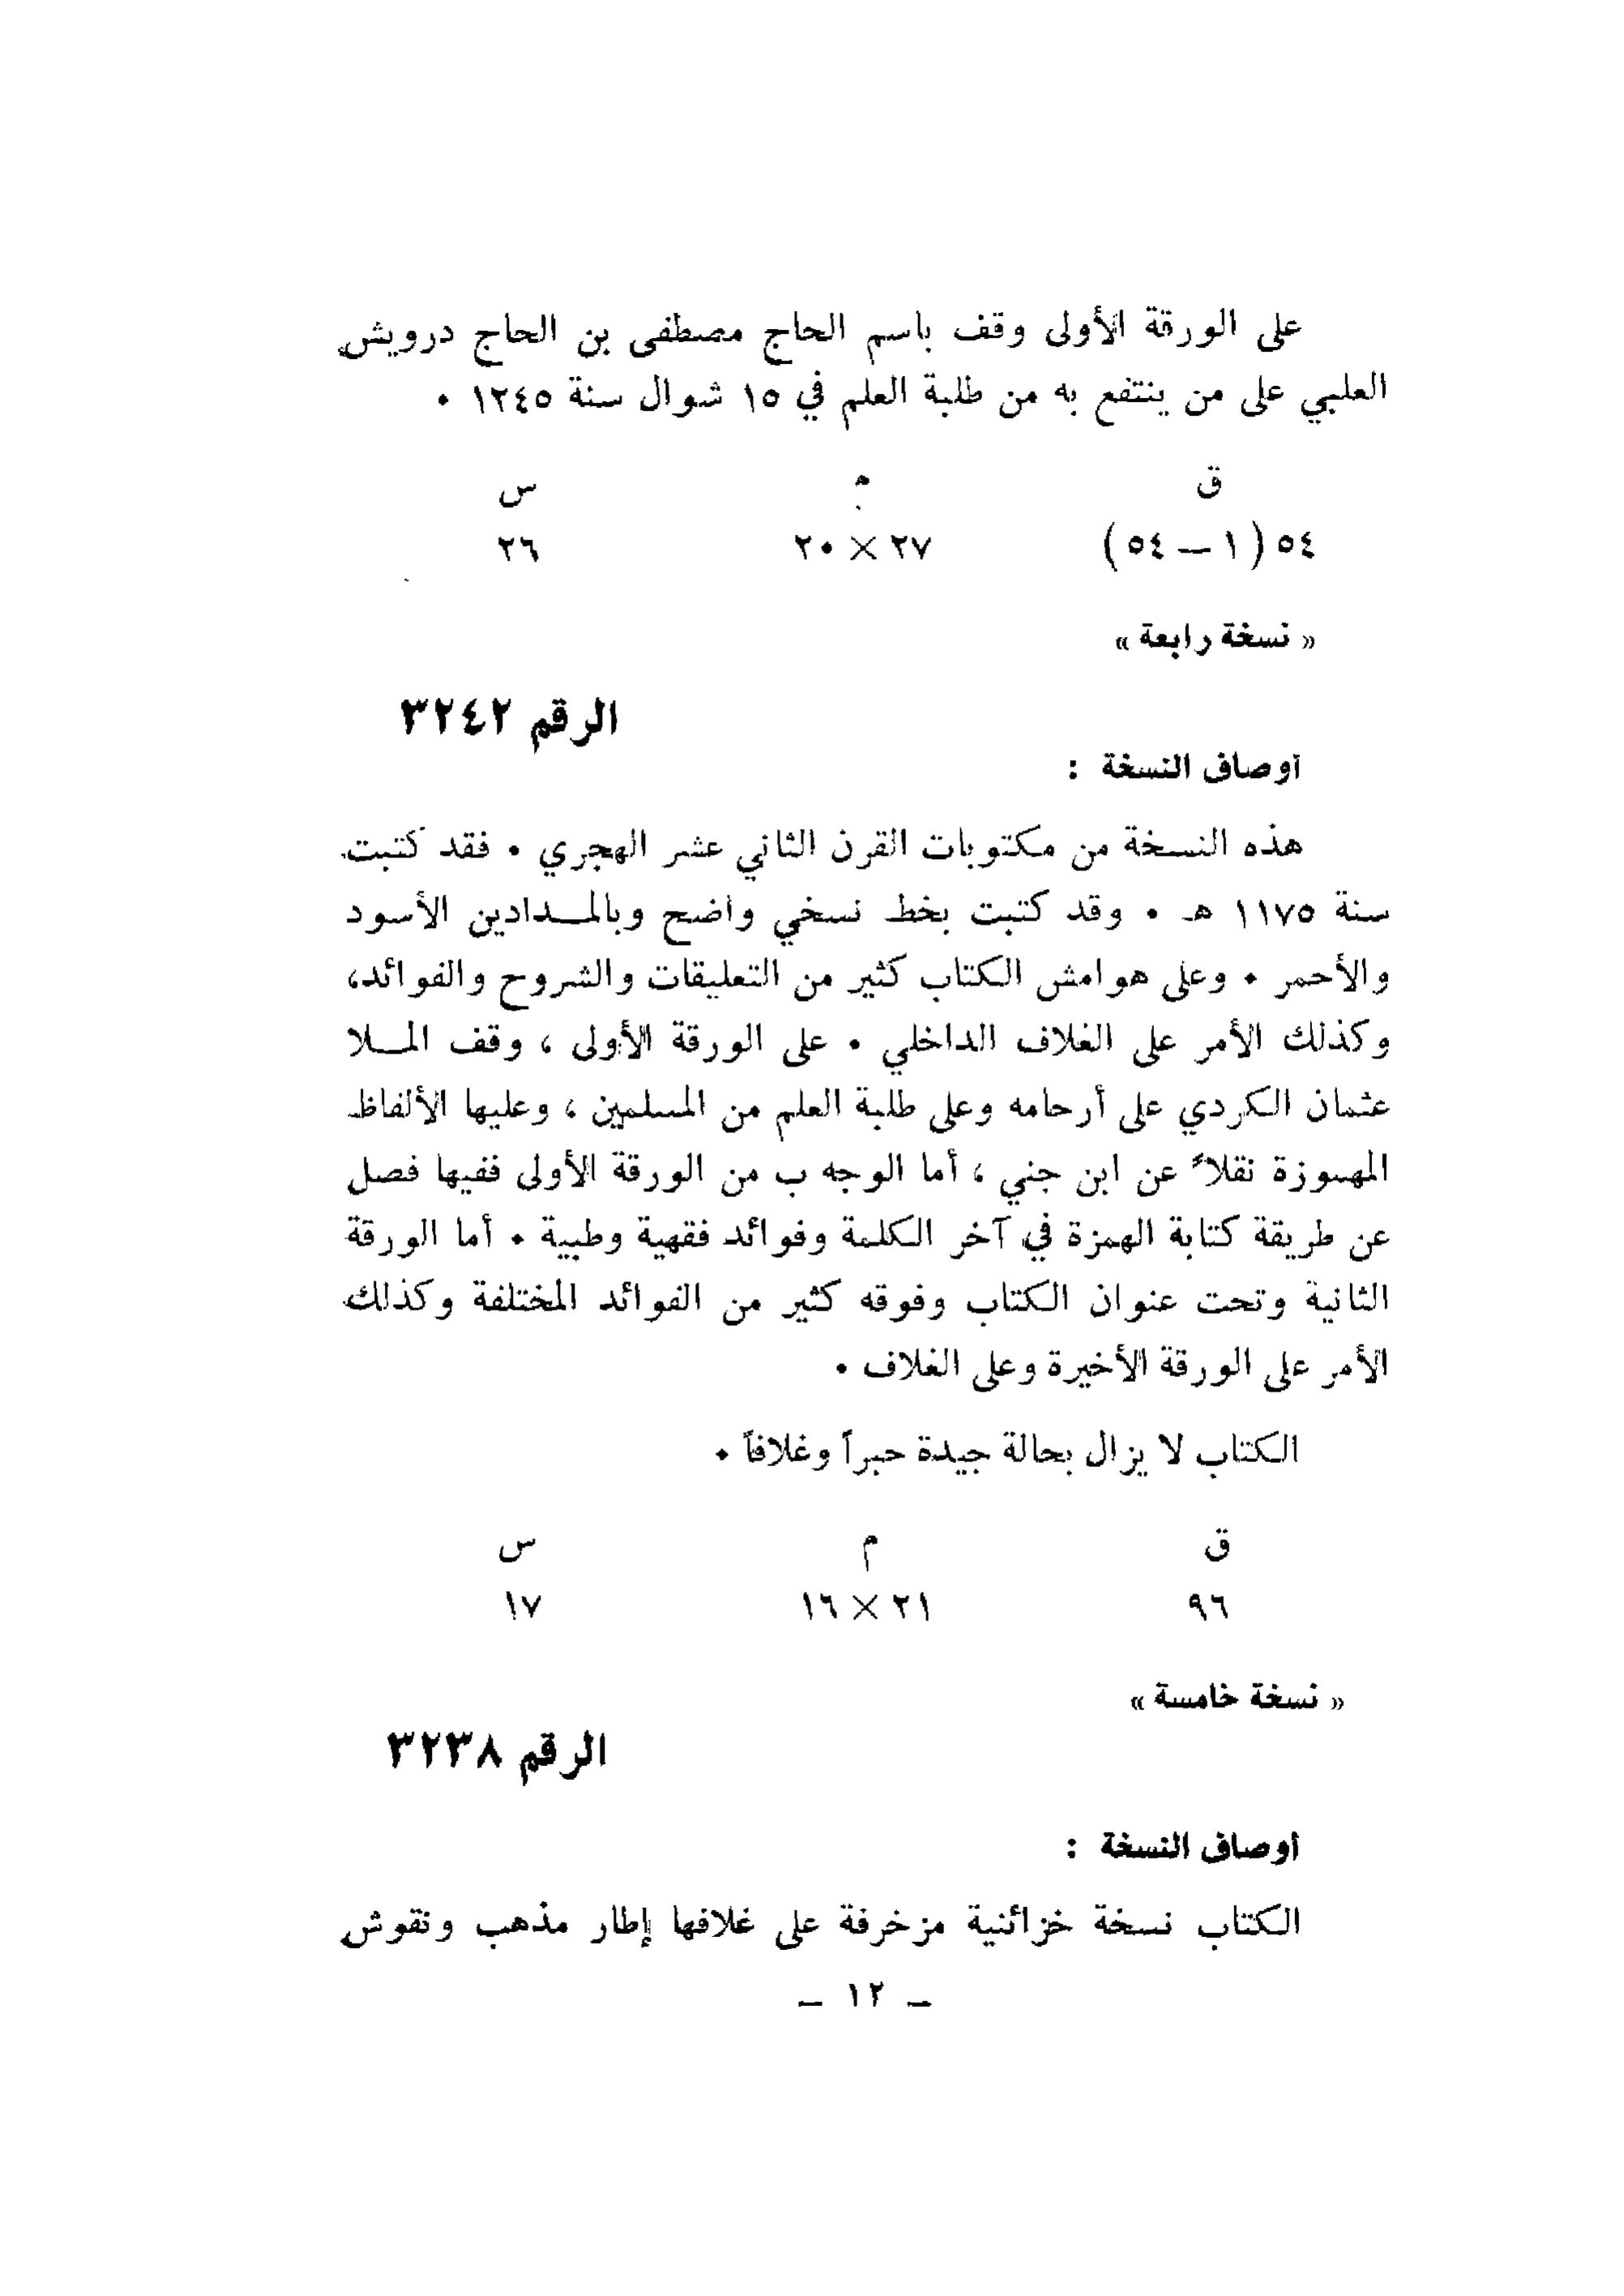 على الورقة الأولى وقف باسم الحاج مصطفى بن الحاج درويش
العلبي على من ينتفع به من طلبة العلم في ١٥ شوال سنة ١٢٤٥ ٠
ق م س
٥٤ (١ – ٥٤) ٢٧ × ٢٠ ٢٦
« نسخة رابعة »
الرقم ٣٢٤٢
أوصاف النسخة :
هذه النسخة من مكتوبات القرن الثاني عشر الهجري ٠ فقد كتبت
سنة ١١٧٥ هـ ٠ وقد كتبت بخط نسخي واضح وبالمـدادين الأسود
والأحمر ٠ وعلى هوامش الكتاب كثير من التعليقات والشروح والفوائد،
وكذلك الأمر على الغلاف الداخلي ٠ على الورقة الأولى ، وقف المـلا
عثمان الكردي على أرحامه وعلى طلبة العلم من المسلمين ، وعليها الألفاظ
المهموزة نقلاً عن ابن جني ، أما الوجه ب من الورقة الأولى ففيها فصل
عن طريقة كتابة الهمزة في آخر الكلمة وفوائد فقهية وطبية ٠ أما الورقة
الثانية وتحت عنوان الكتاب وفوقه كثير من الفوائد المختلفة وكذلك
الأمر على الورقة الأخيرة وعلى الغلاف ٠
الكتاب لا يزال بحالة جيدة حبراً وغلافاً ٠
ق م س
٩٦ ٢١ × ١٦ ١٧
« نسخة خامسة »
الرقم ٣٢٣٨
أوصاف النسخة :
الكتاب نسخة خزائنية مزخرفة على غلافها إطار مذهب ونقوش
– ١٢ –